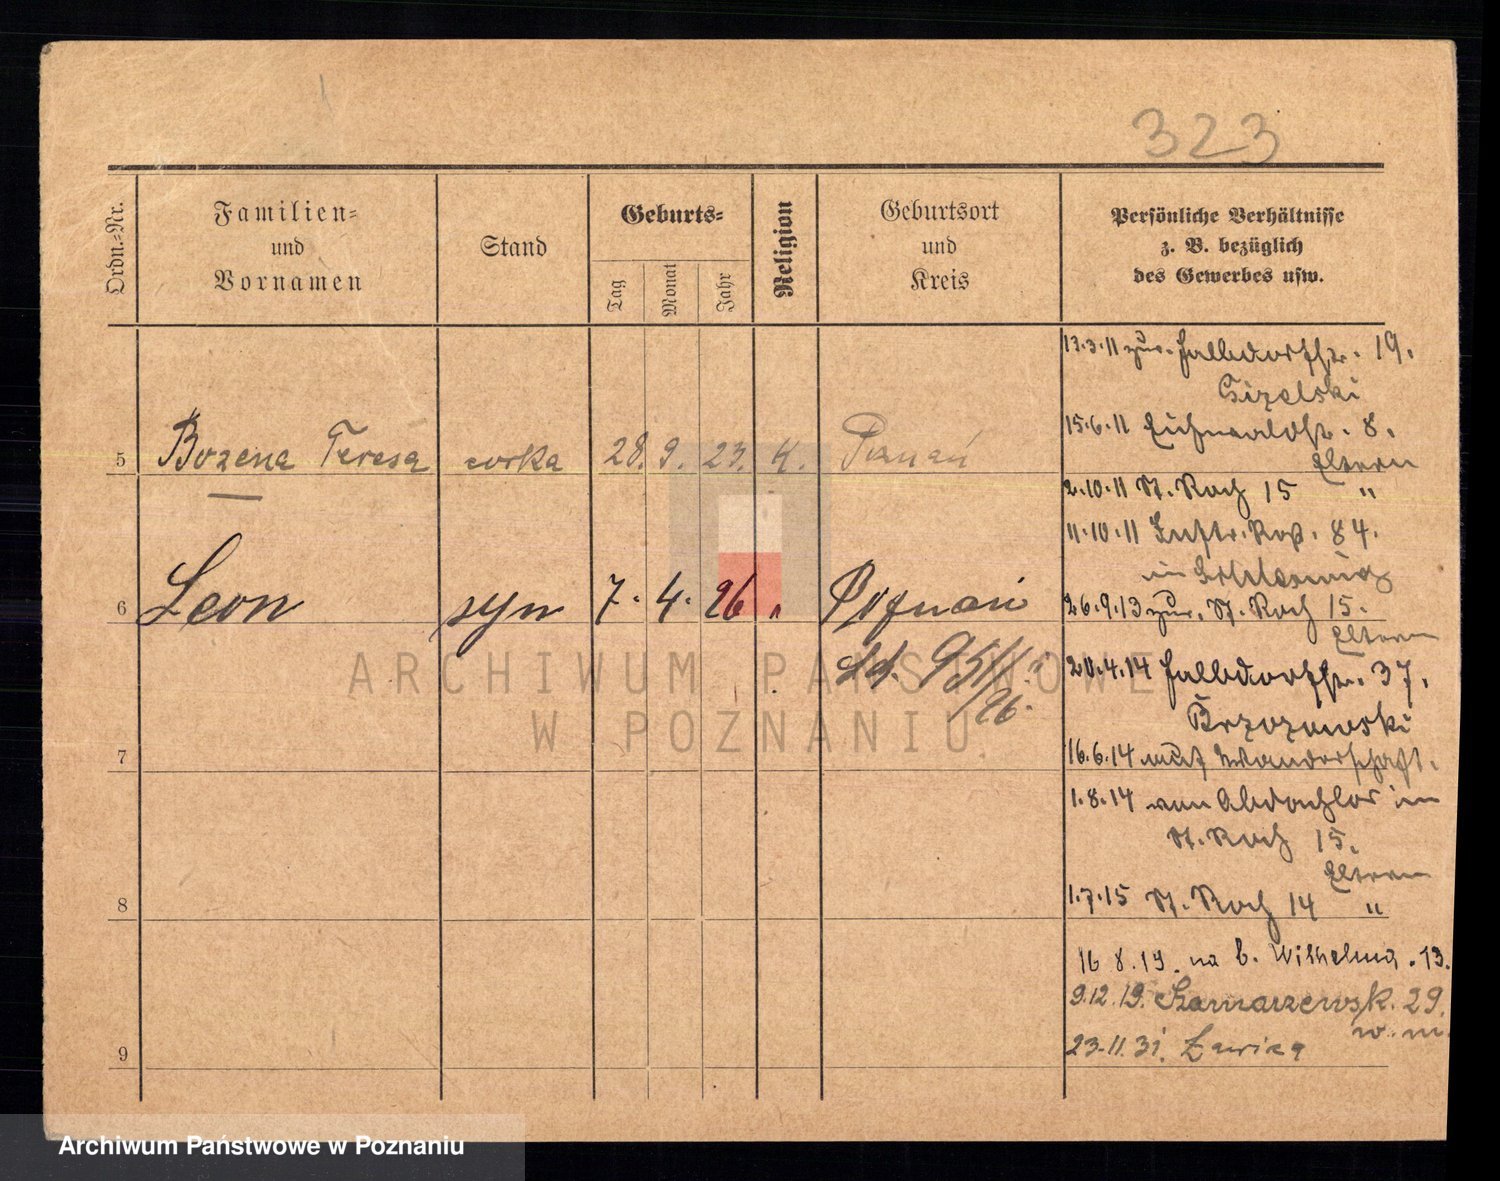 323
Ordn.=Nr.
Familien=
und
Vornamen
Stand
Geburts=
Tag
Monat
Jahr
Religion
Geburtsort
und
Kreis
Persönliche Verhältnisse
z. B. bezüglich
des Gewerbes usw.
5 Bozena Teresa corka 28. 9. 23. K. Poznań
6 Leon syn 7. 4. 26 " Poznań
951/
/26.
7
8
9
13.3.11 zur. Halbdorfstr. 19.
15.6.11 Eichwaldstr. 8.
Eltern
2.10.11 St. Roch 15 "
11.10.11 84.
in Schleswig
26.9.13 zur. St. Roch 15.
Eltern
20.4.14 Halbdorfstr. 37.
Brzozowski
16.6.14 auf Wanderschaft.
1.8.14 von
St. Roch 15.
Eltern
1.7.15 St. Roch 14 "
16 8.19. na b. Wilhelma. 13.
9.12.19. Szamarzewsk. 29.
w. m.
23.11.31.
ARCHIWUM PAŃSTWOWE
W POZNANIU
Archiwum Państwowe w Poznaniu